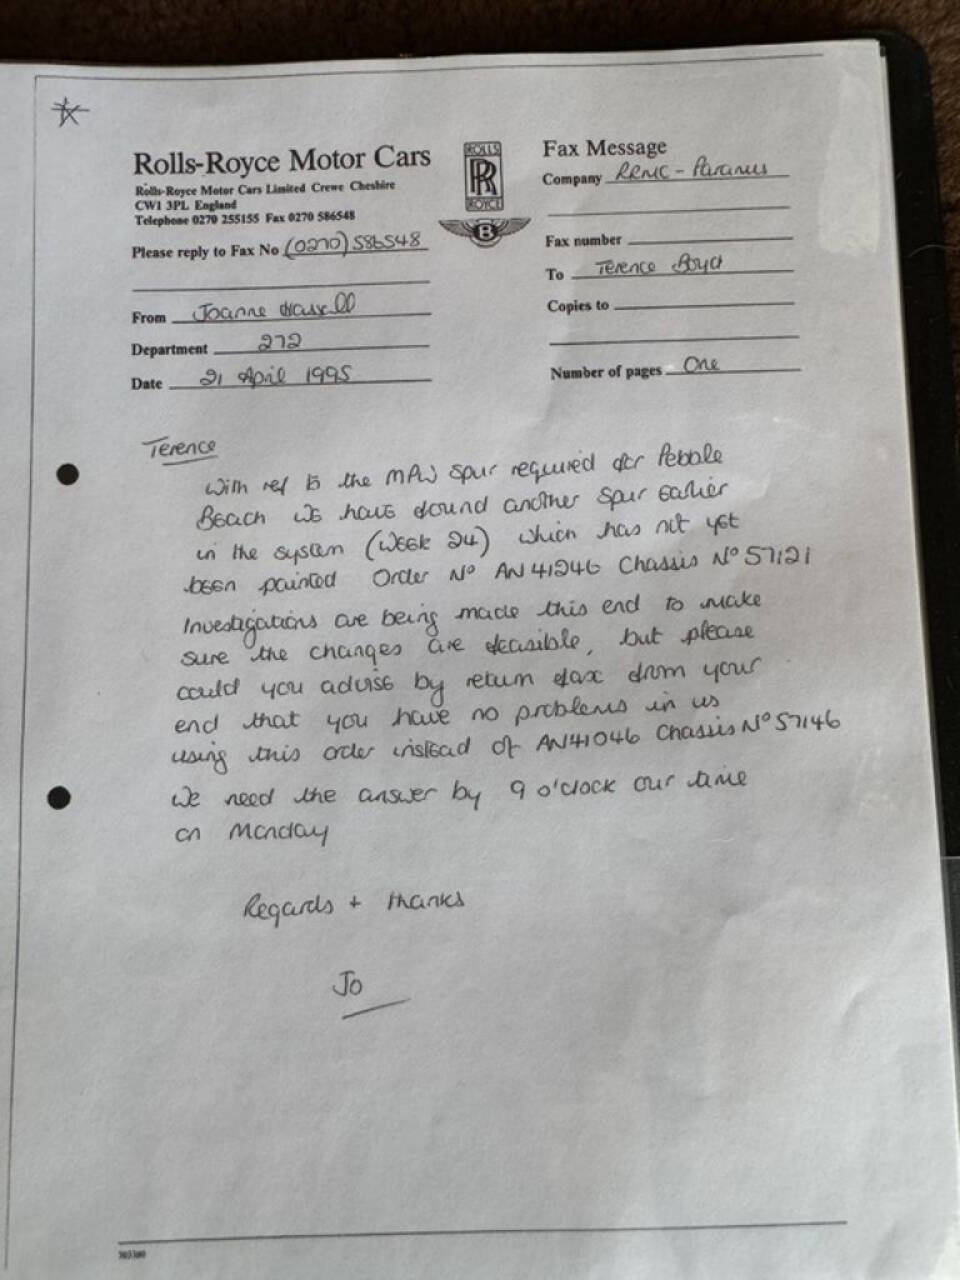 Rolls-Royce Motor Cars
Rolls-Royce Motor Cars Limited Crewe Cheshire
CW1 3PL England
Telephone 0270 255155 Fax 0270 586548
Please reply to Fax No (0270) 586548
From Joanne
Department 272
Date 21 April 1995
ROLLS
RR
ROYCE
B
Fax Message
Company RRMC - Paramus
Fax number
To Terence Boyd
Copies to
Number of pages One
Terence
With ref to the MPW Spur required for Pebble
Beach we have found another Spur earlier
in the system (Week 24) which has not yet
been painted Order Nº AN 41246 Chassis Nº 57121
Investigations are being made this end to make
sure the changes are feasible, but please
could you advise by return fax from your
end that you have no problems in us
using this order instead of AN41046 Chassis Nº 57146
We need the answer by 9 o'clock our time
on Monday
Regards + thanks
Jo